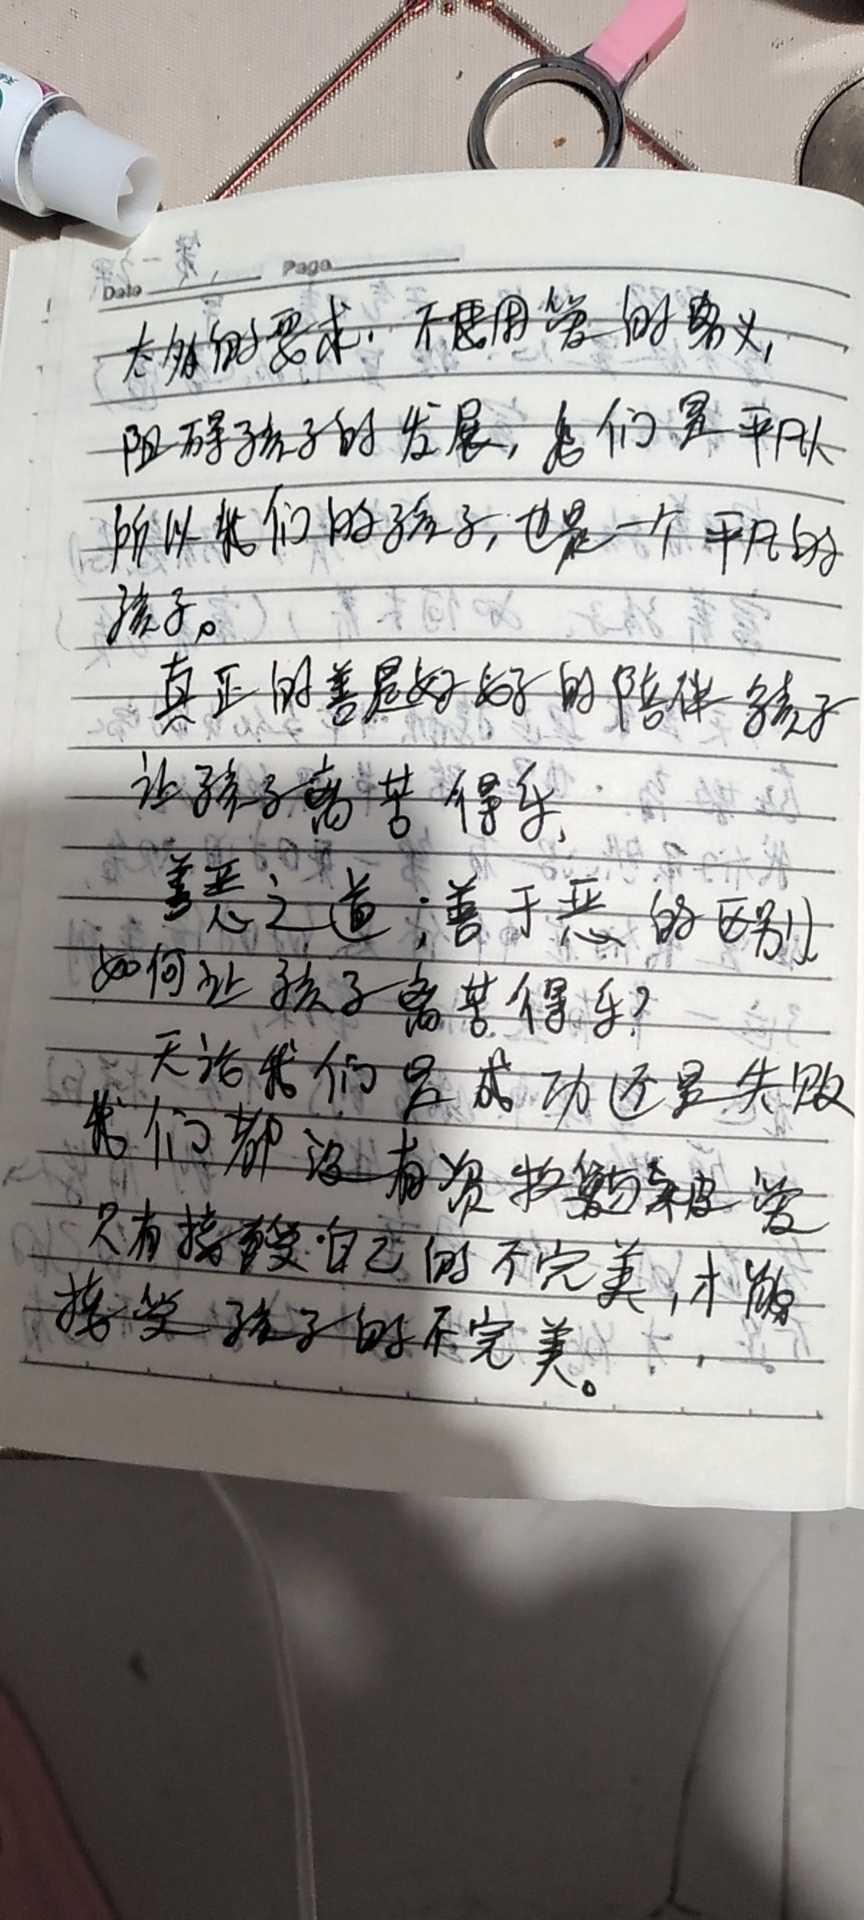 Date Page
太多的要求.不要用爱的名义,
阻碍孩子的发展,我们是平凡人
所以我们的孩子,也是一个平凡的
孩子。
真正的善是好好的陪伴孩子
让孩子离苦得乐,
善恶之道;善于恶的区别
如何让孩子离苦得乐?
无论我们是成功还是失败
我们都没有资格 被爱
只有接受自己的不完美,才能
接受孩子的不完美。